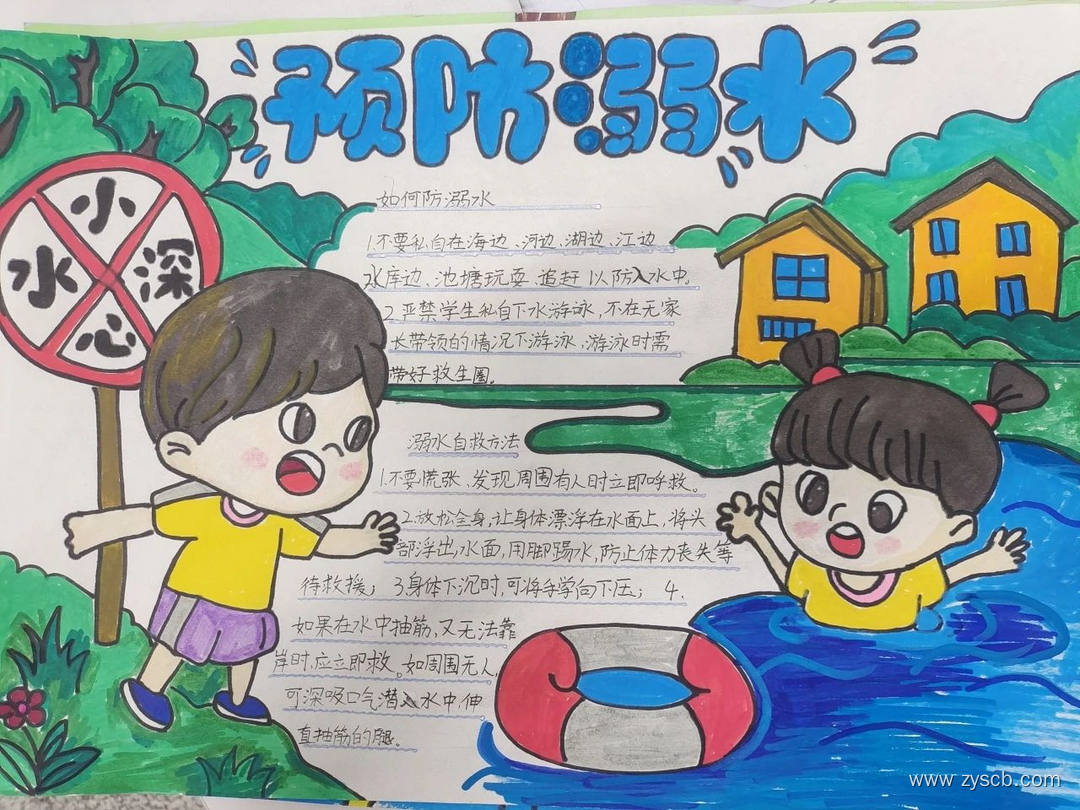 预防溺水
小
水 深
心
如何防溺水
1.不要私自在海边、河边、湖边、江边
水库边、池塘玩耍、追赶以防入水中。
2.严禁学生私自下水游泳,不在无家
长带领的情况下游泳,游泳时需
带好救生圈。
溺水自救方法
1.不要慌张、发现周围有人时立即呼救。
2.放松全身,让身体漂浮在水面上,将头
部浮出水面,用脚踢水,防止体力丧失等
待救援; 3身体下沉时,可将手掌向下压; 4.
如果在水中抽筋,又无法靠
岸时,应立即救。如周围无人,
可深吸口气潜入水中,伸
直抽筋的腿。
www.zyscb.com